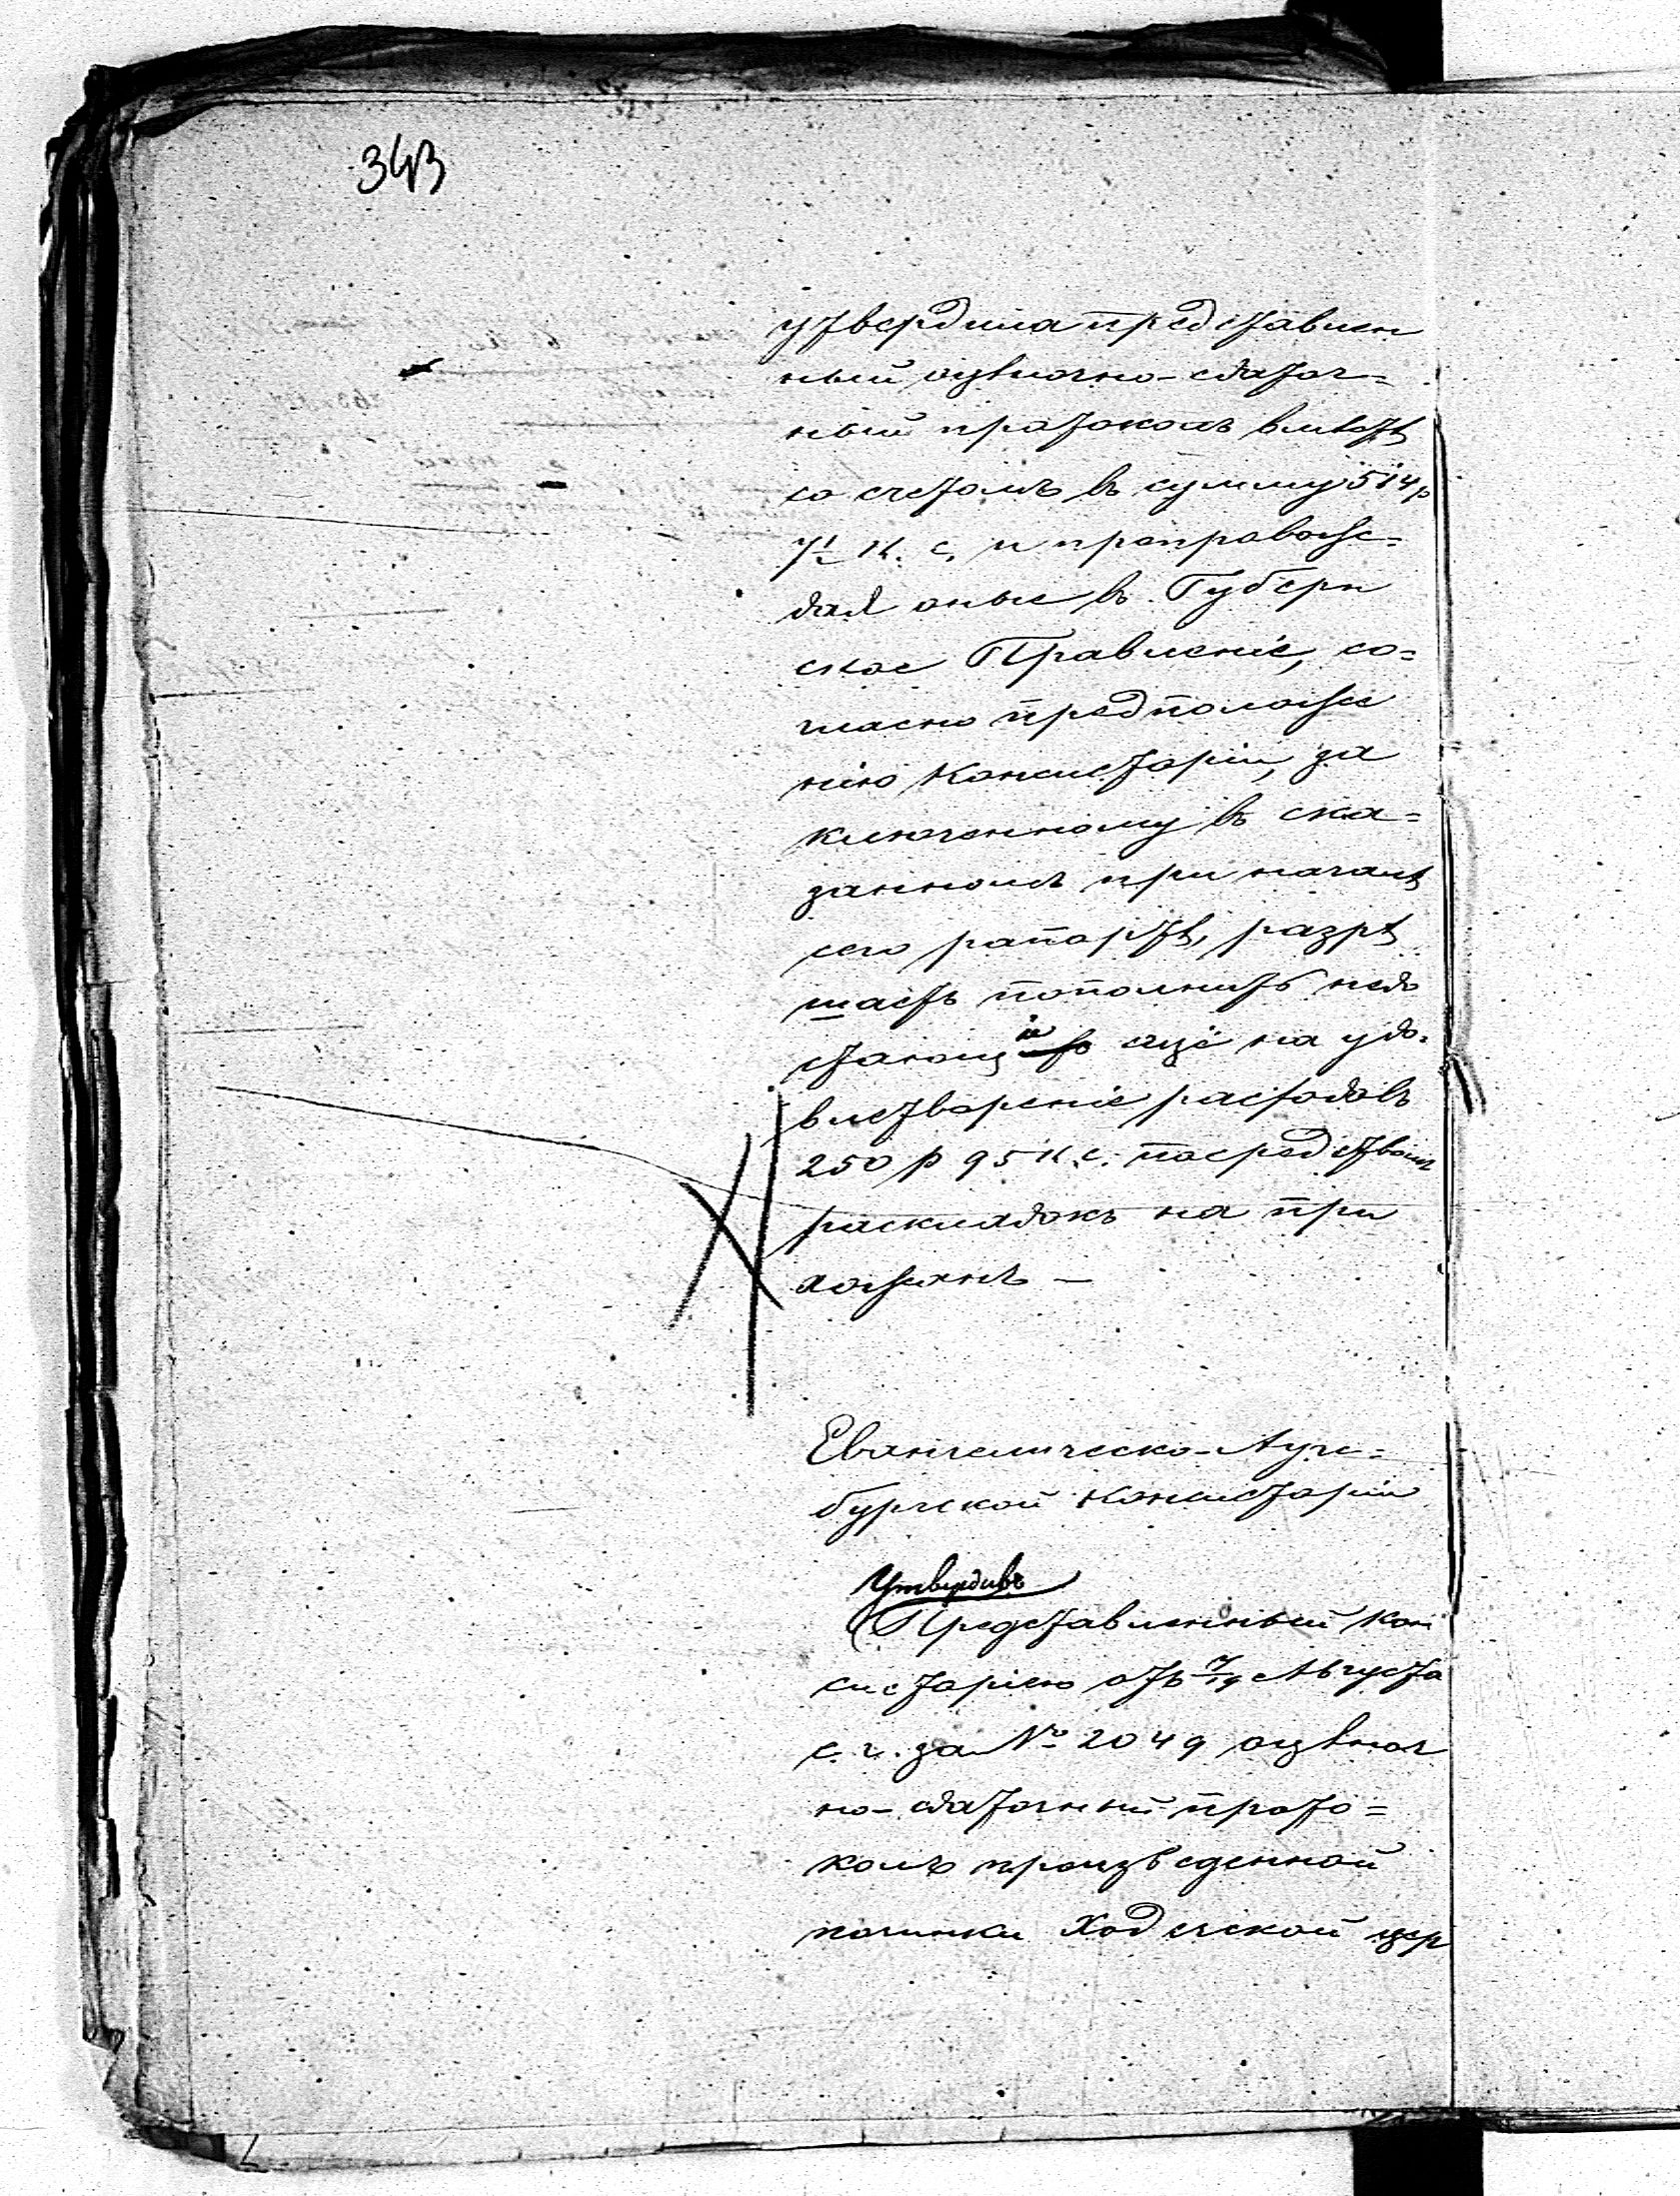 343
утвердила представлен
ный оцѣночно-сдаточ=
ный протоколъ вмѣстѣ
со счетомъ въ сумму 514 р
7½ к. с. и препровож=
дая оные въ Губерн
ское Правленіе, со=
гласно предположе
нію Консисторіи, за
ключенному въ ска=
занномъ при началѣ
сего рапортѣ, разрѣ
шаетъ пополнить недо
стающіе еще на удо=
влетвореніе расходовъ
250 р 95 к. с. посредствомъ
раскладокъ на при
хожанъ —
Евангелическо-Аугс=
бургской Консисторіи
Утвердивъ
Представленный Кон
систоріею отъ 7/19 Августа
с. г. за № 2049 оцѣноч
но-сдаточный прото=
колъ произведенной
починки Ходечской цер